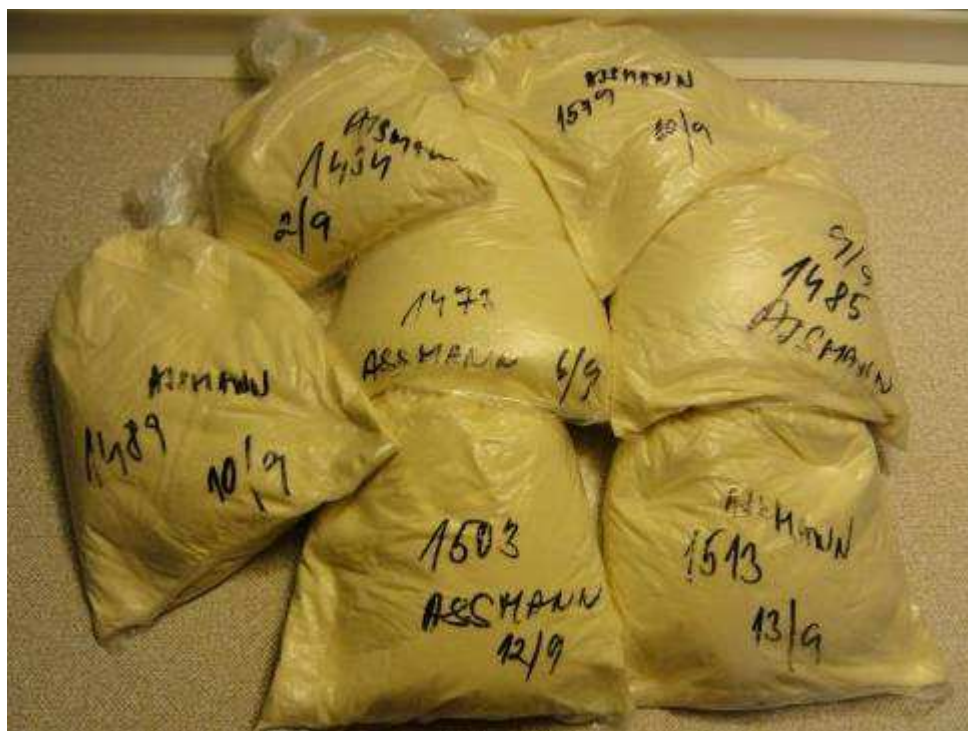 ASSMANN
1434
2/9
ASSMANN
1579
9/9
1485
ASSMANN
1473
ASSMANN 6/9
ASSMANN
1489
10/9
1503
ASSMANN
12/9
ASSMANN
1513
13/9